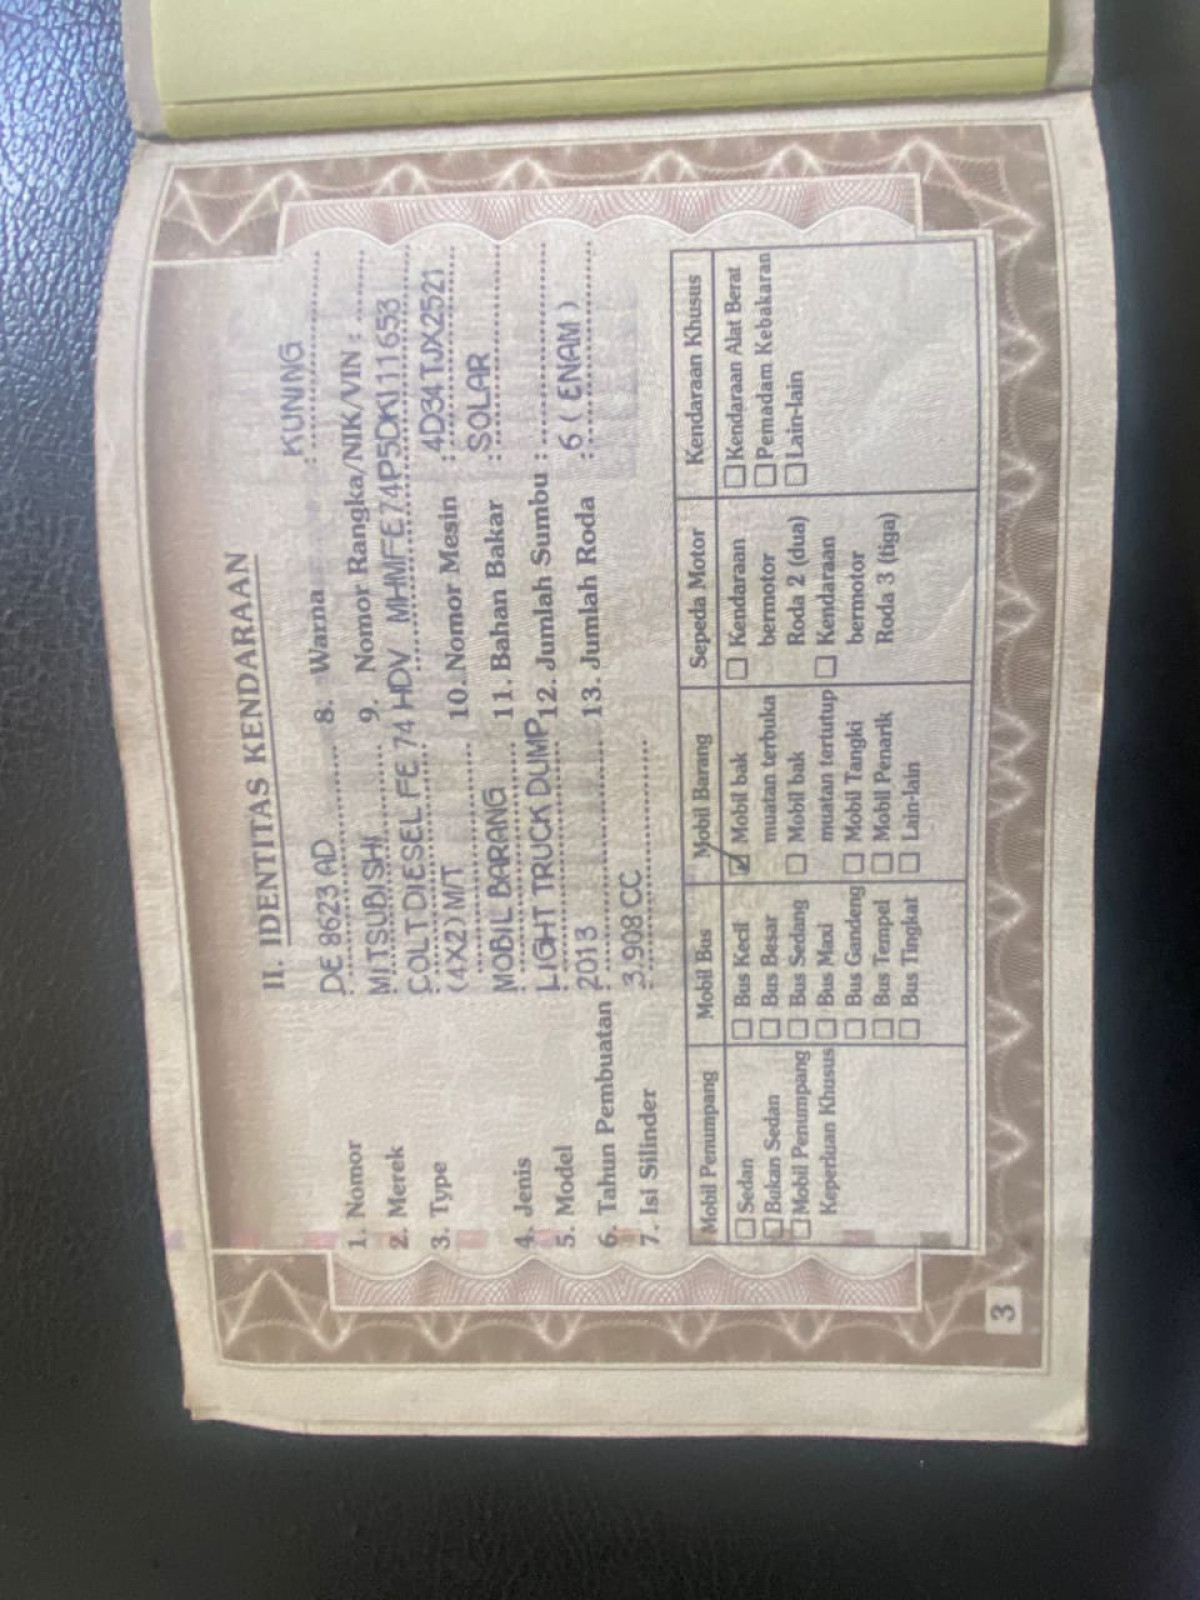 II. IDENTITAS KENDARAAN
1. Nomor : DE 8623 AD
2. Merek : MITSUBISHI
3. Type : COLT DIESEL FE 74 HDV
(4X2) M/T
4. Jenis : MOBIL BARANG
5. Model : LIGHT TRUCK DUMP
6. Tahun Pembuatan : 2013
7. Isi Silinder : 3.908 CC
8. Warna : KUNING
9. Nomor Rangka/NIK/VIN :
MHMFE74P5DK111653
10. Nomor Mesin : 4D34TJX2521
11. Bahan Bakar : SOLAR
12. Jumlah Sumbu :
13. Jumlah Roda : 6 ( ENAM )
Mobil Penumpang
☐ Sedan
☐ Bukan Sedan
☐ Mobil Penumpang
Keperluan Khusus
Mobil Bus
☐ Bus Kecil
☐ Bus Besar
☐ Bus Sedang
☐ Bus Maxi
☐ Bus Gandeng
☐ Bus Tempel
☐ Bus Tingkat
Mobil Barang
☑ Mobil bak
muatan terbuka
☐ Mobil bak
muatan tertutup
☐ Mobil Tangki
☐ Mobil Penarik
☐ Lain-lain
Sepeda Motor
☐ Kendaraan
bermotor
Roda 2 (dua)
☐ Kendaraan
bermotor
Roda 3 (tiga)
Kendaraan Khusus
☐ Kendaraan Alat Berat
☐ Pemadam Kebakaran
☐ Lain-lain
3